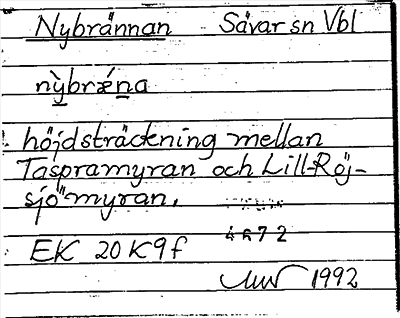 Nybrännan Sävar sn Vbl
nỳbrǽna
höjdsträckning mellan
Taspramyran och Lill-Röj-
sjömyran.
4672
EK 20 K 9f
1992